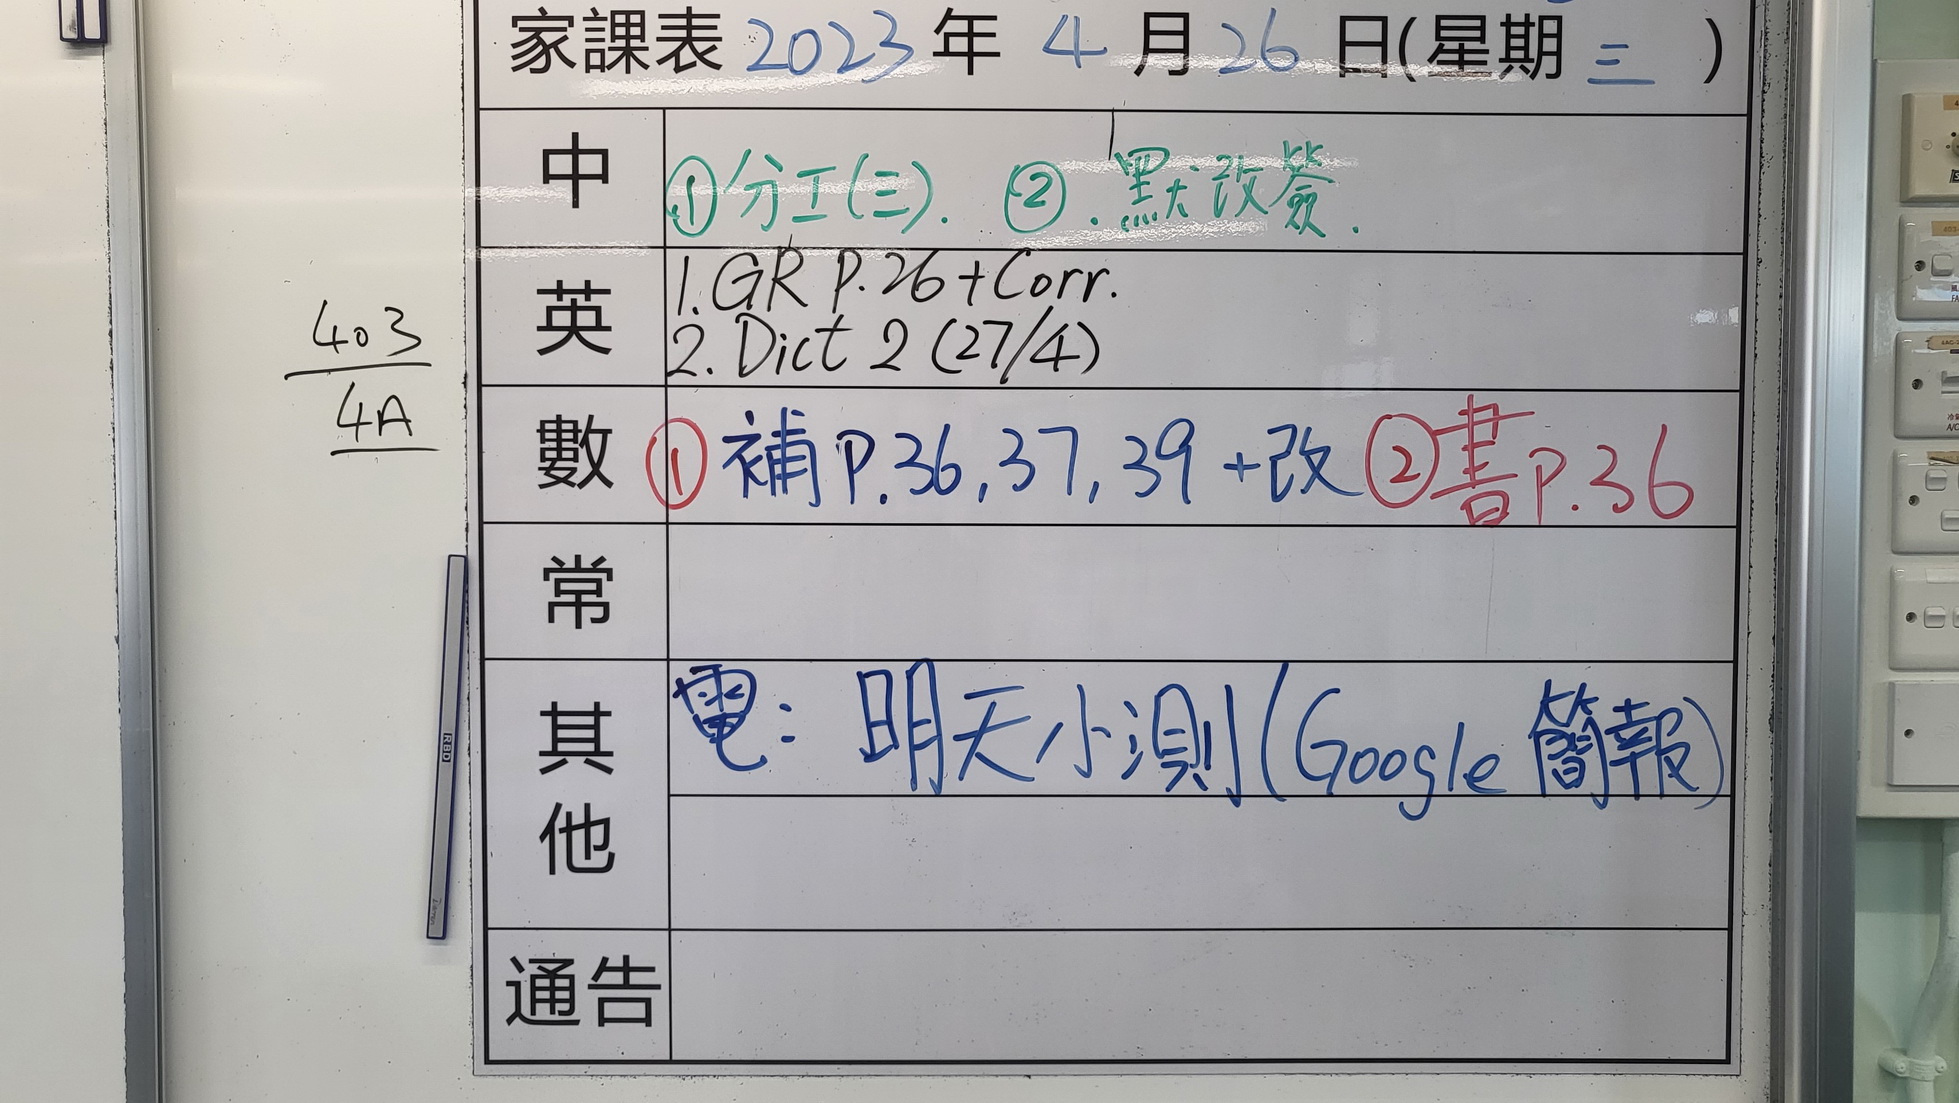 家課表 2023 年 4 月 26 日(星期 三 )
中 ①分工(三). ②.默改簽.
英 1.GR P.26+Corr.
2.Dict 2 (27/4)
403
4A
數 ①補P.36,37,39+改 ②書P.36
常
其他 電：明天小測(Google 簡報)
通告
RBD